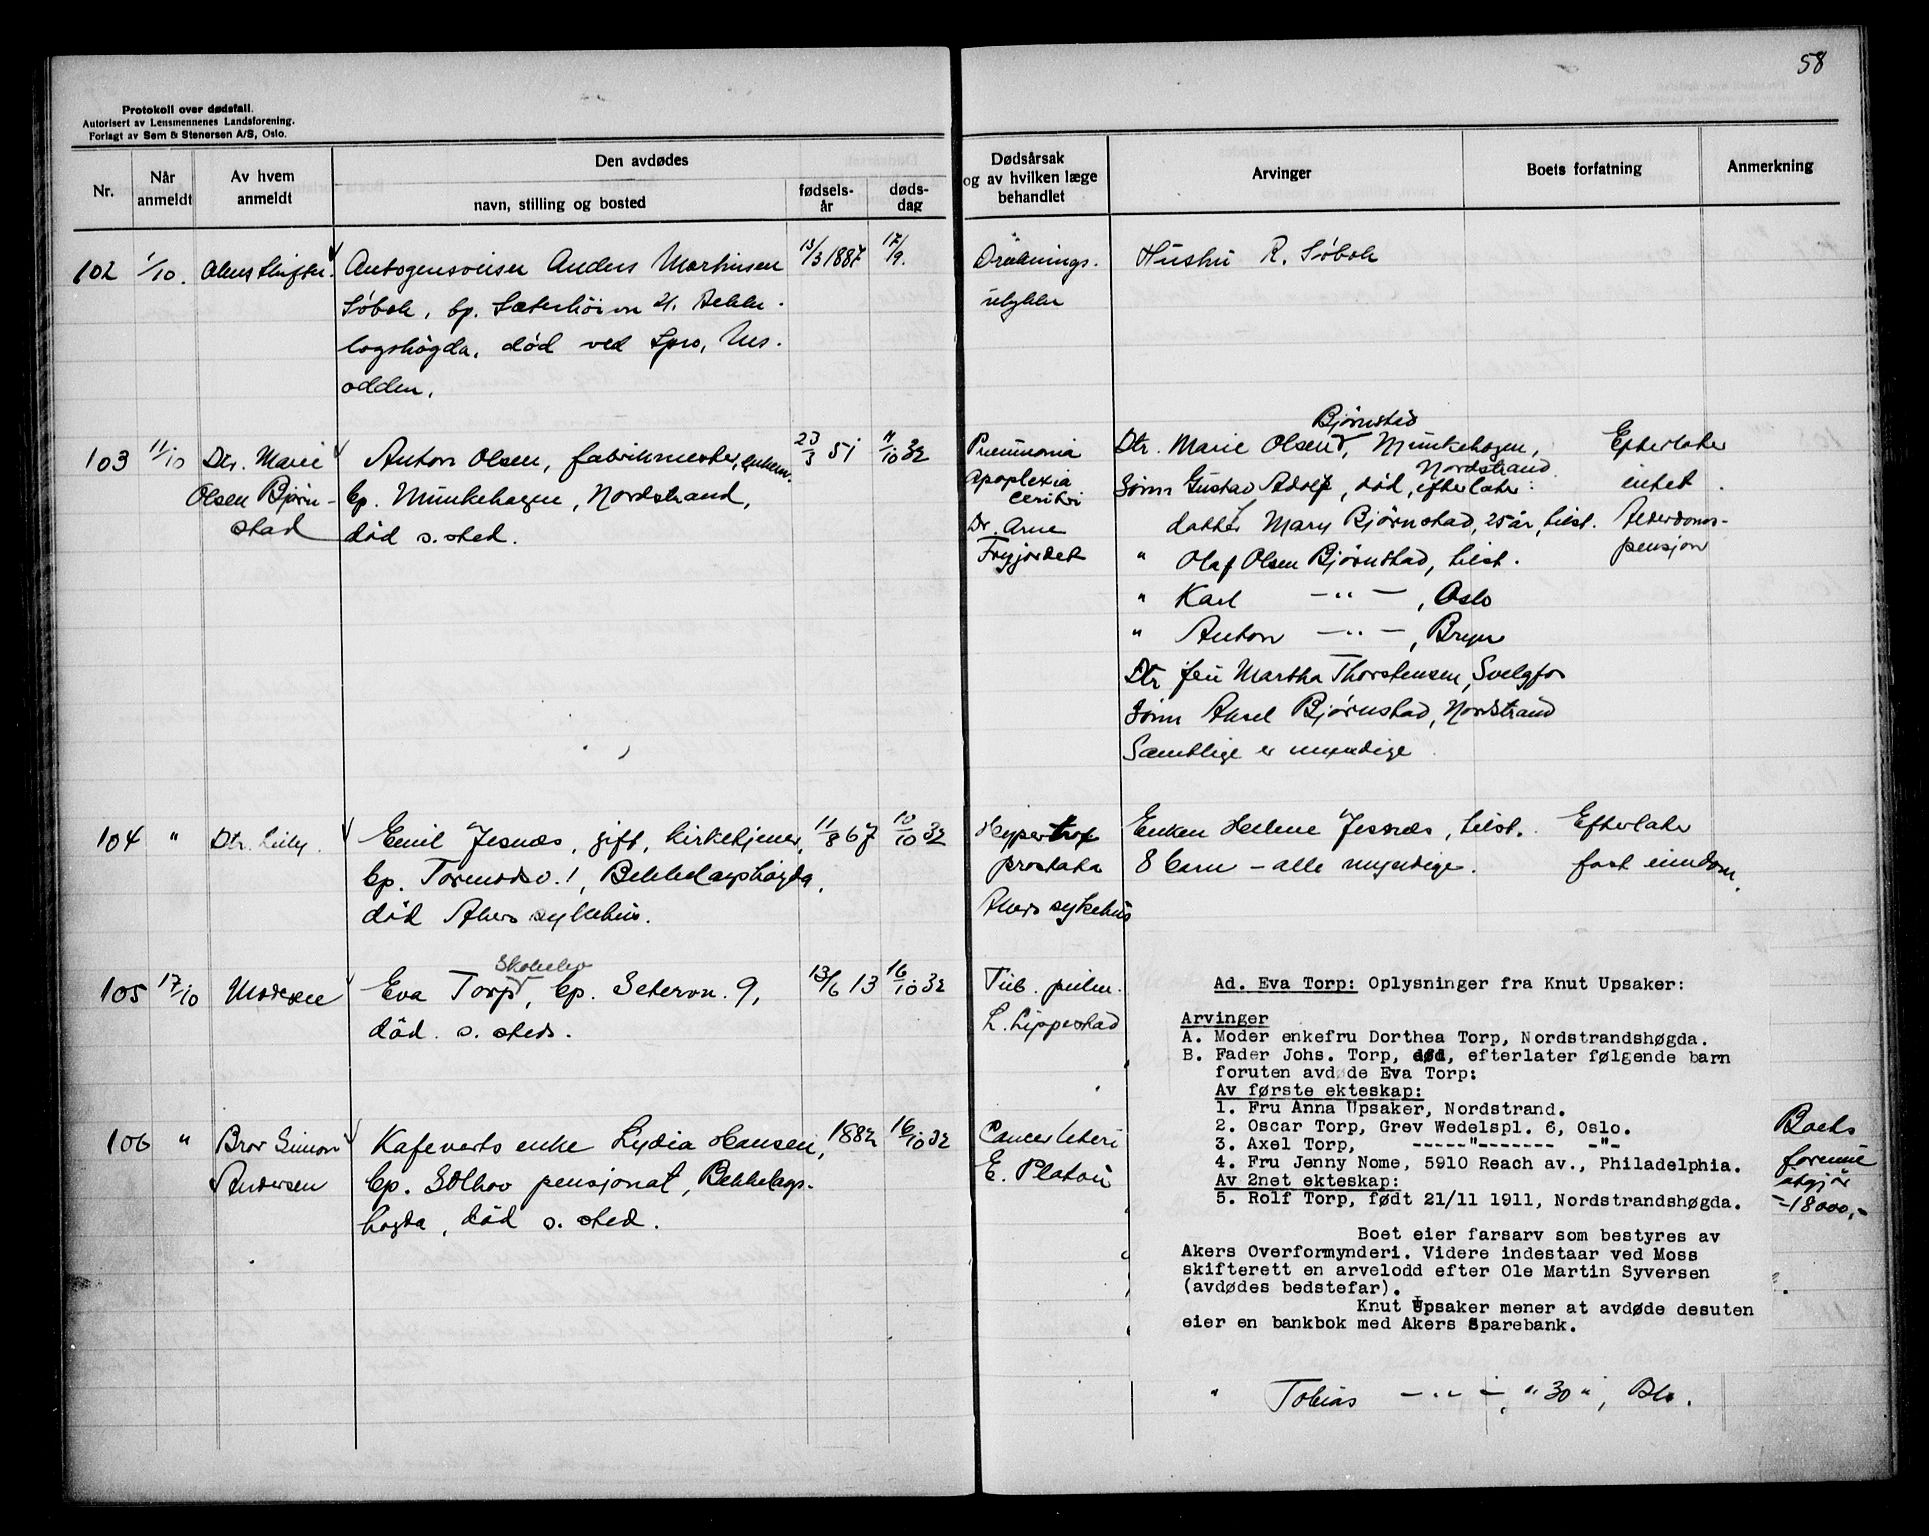 58
Protokoll over dødsfall.
Autorisert av Lensmennenes Landsforening.
Forlagt av Sem & Stenersen A/S, Oslo.
Nr.
Når anmeldt
Av hvem anmeldt
Den avdødes
navn, stilling og bosted
fødsels-år
døds-dag
Dødsårsak
og av hvilken læge
behandlet
Arvinger
Boets forfatning
Anmerkning
102 1/10. Anders Martinsen 13/3 1887 17/9. Hustru R. Söbok
Söbok, bp.
logshögda, død ved Spro, Nes-
odden.
103 11/10 Dtr. Marie Anton Olsen, fabrikmester, enkem. 23/3 51 11/10 32
Olsen Bjørn- bp. Munkehagen, Nordstrand,
stad død s. sted.
Pneumonia
Apoplexia
cerebri
Dr. Arne
Frygjordet
Bjørnstad
Dtr. Marie Olsen, Munkehagen,
Nordstrand
Sønn Gustav Adolf, død, efterlater:
datter Mary Bjørnstad, 25 år, tilst.
" Olaf Olsen Bjørnstad, tilst.
" Karl —"—, Oslo
" Anton —"—, Bryn
Dtr fru Martha Thorstensen, Svelgfos
Sønn Aksel Bjørnstad, Nordstrand
Samtlige er myndige
Efterlater
intet.
Alderdoms-
pensjon
104 " Dtr. Lilly. Emil Jesnæs, gift, kirketjener, 11/8 67 10/10 32
bp. Tormodsv. 1, Bekkelagshögda,
död Akers sykehus.
Hypertrof
prostata
Akers sykehus
Enken Helene Jesnæs, tilst.
8 barn – alle myndige.
Efterlater
fast eiendom.
105 17/10 Moderen Eva Torp, bp. Setervn. 9, 13/6 13 16/10 32
död. s. steds.
Tub. pulm.
L. Lippestad
Ad. Eva Torp: Oplysninger fra Knut Upsaker:
Arvinger
A. Moder enkefru Dorthea Torp, Nordstrandshøgda.
B. Fader Johs. Torp, død, efterlater følgende barn
foruten avdøde Eva Torp:
Av første ekteskap:
1. Fru Anna Upsaker, Nordstrand.
2. Oscar Torp, Grev Wedelspl. 6, Oslo.
3. Axel Torp, -----"------- -"-
4. Fru Jenny Nome, 5910 Reach av., Philadelphia.
Av 2net ekteskap:
5. Rolf Torp, født 21/11 1911, Nordstrandshøgda.
Boet eier farsarv som bestyres av
Akers Overformynderi. Videre indestaar ved Moss
skifterett en arvelodd efter Ole Martin Syversen
(avdødes bedstefar).
Knut Upsaker mener at avdøde desuten
eier en bankbok med Akers Sparebank.
106 " Bror Simon Kafeverts enke Lydia Hansen, 1882 16/10 32
Andersen bp. Solhov pensjonat, Bekkelags-
høgda, död s. sted.
Cancer uteri
E. Platou
Boets
formue
utgjør
-18000,-
" Tobias —"— , "30", Blo.